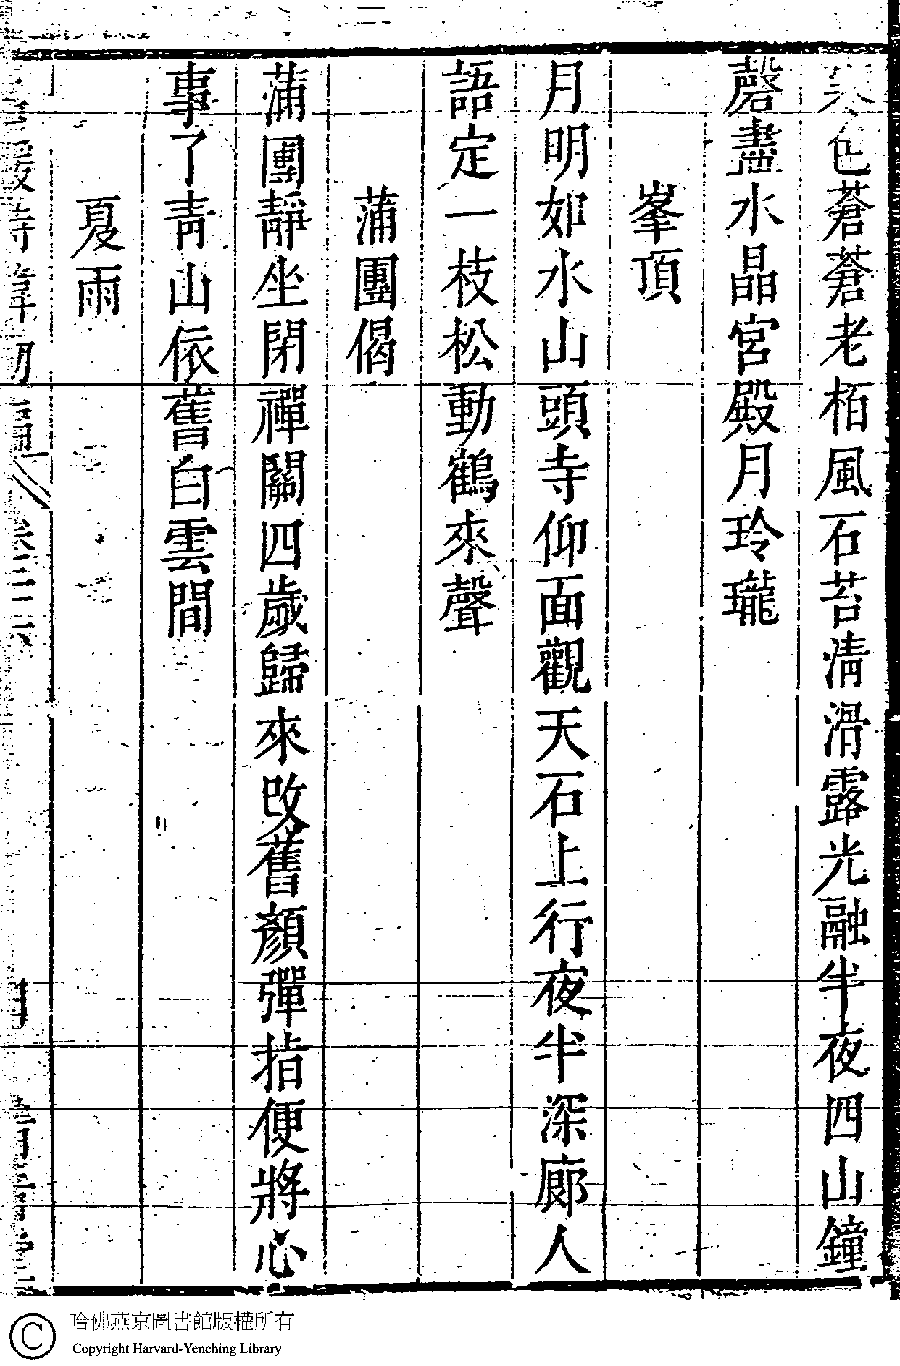 寒色蒼蒼老栢風石苔清滑露光融半夜四山鐘
磬盡水晶宮殿月玲瓏
峯頂
月明如水山頭寺仰面觀天石上行夜半深廊人
語定一枝松動鶴來聲
蒲團偈
蒲團靜坐閉禪關四歲歸來改舊顏彈指便將心
事了青山依舊白雲間
夏雨
哈佛燕京圖書館版權所有
Copyright Harvard-Yenching Library